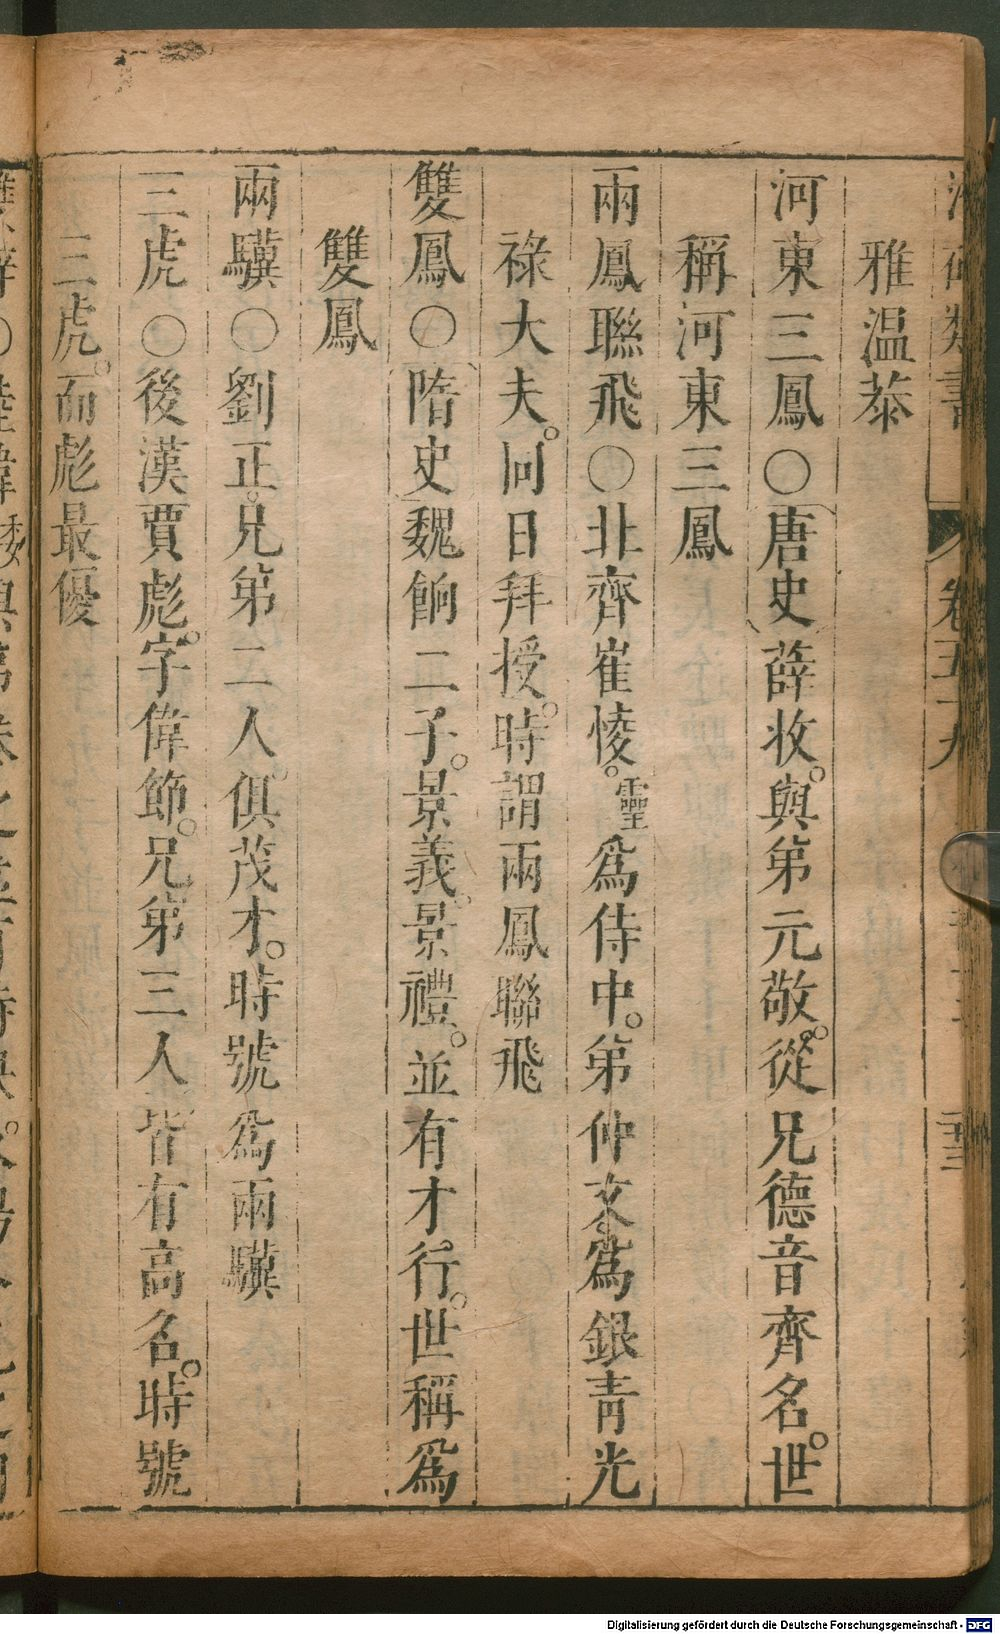 卷五十九
雅温恭
河東三鳳○唐史薛收。與第元敬。從兄德音齊名。世
稱河東三鳳
兩鳳聯飛○北齊崔㥄。靈為侍中。第仲文為銀青光
祿大夫。同日拜授。時謂兩鳳聯飛
雙鳳○隋史魏餉二子。景義。景禮。並有才行。世稱為
雙鳳
兩驥○劉正。兄第二人。俱茂才。時號為兩驥
三虎○後漢賈彪。字偉節。兄第三人皆有高名。時號
三虎。而彪最優
Digitalisierung gefördert durch die Deutsche Forschungsgemeinschaft - DFG